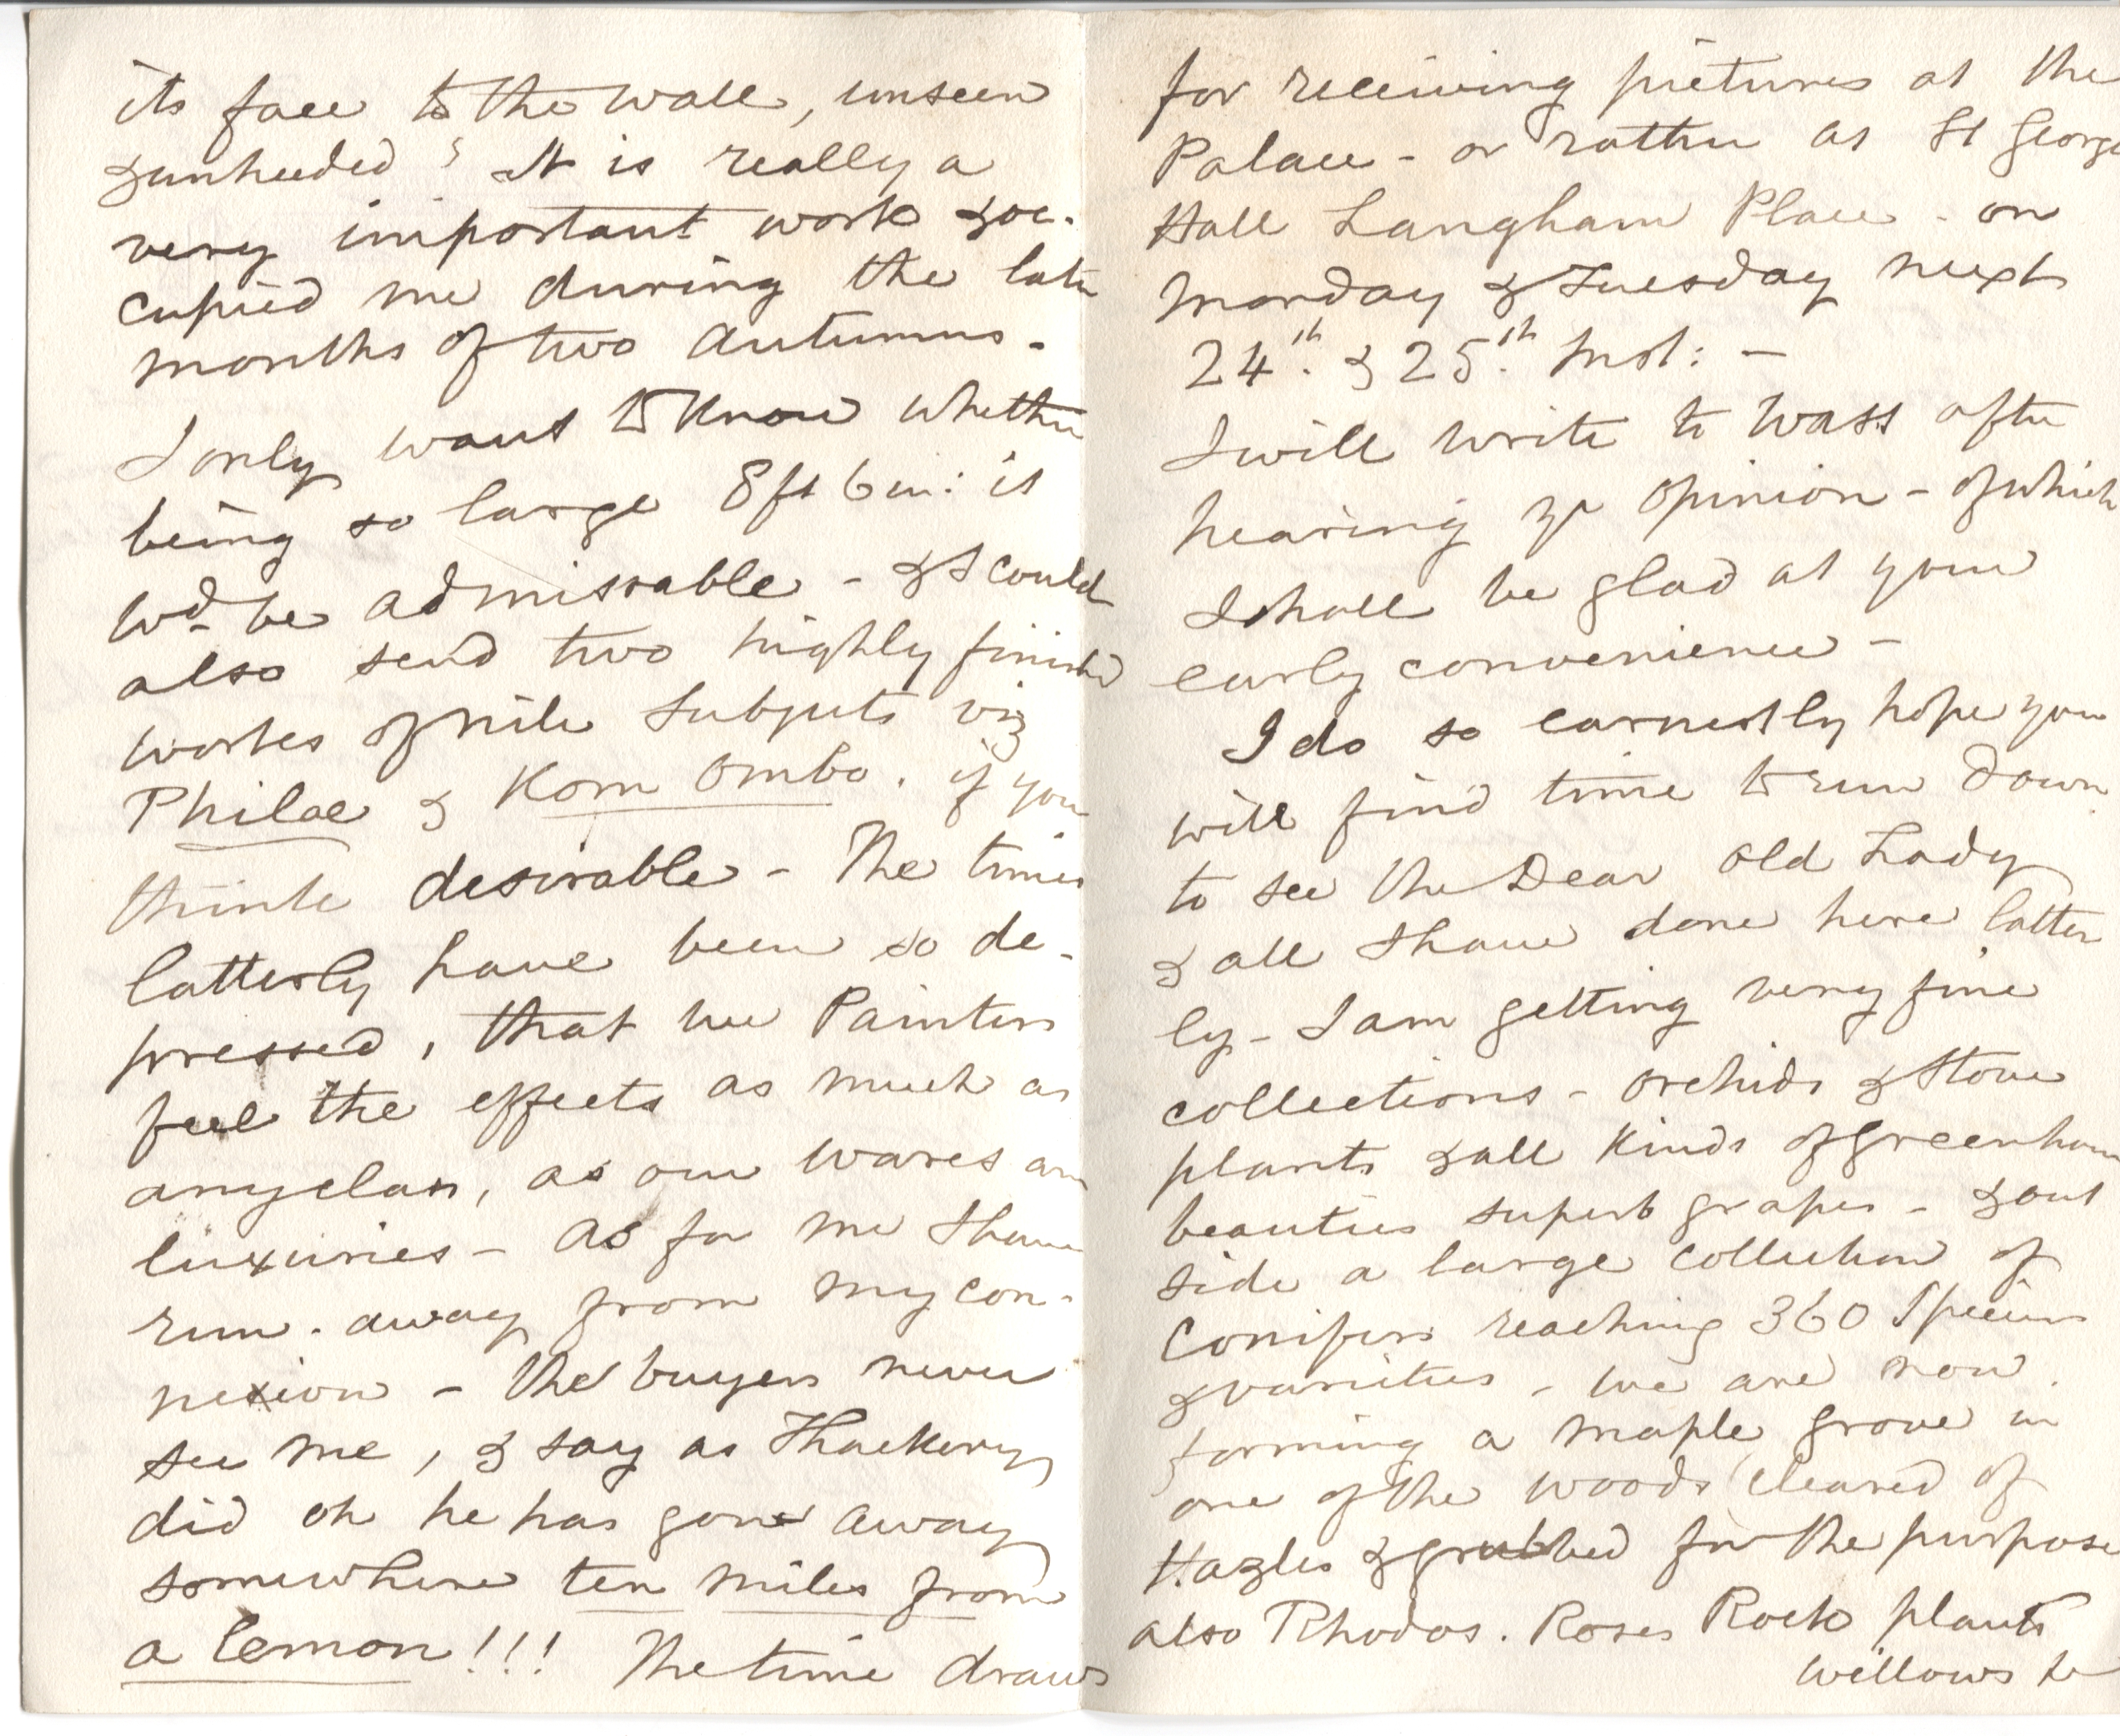 its face to the wall, unseen
& unheeded? It is really a
very important work & oc-
cupied me during the late
months of two Autumns -
I only want to know whether
being so large 8 ft 6 in: it
wd. be admissable - & I could
also send two highly finished
works of Nile Subjects viz
Philae & Kom Ombo. if you
think desirable - The times
latterly have been so de-
pressed, that we Painters
feel the effects as much as
any class, as our wares are
luxuries - As for me I have
run. away from my con-
nexion - the buyers never
see me, & say as Thackery
did oh he has gone away
somewhere ten miles from
a lemon!!! The time draws
for receiving pictures at the
Palace - or rather at St George
Hall Langham Place - on
Monday & Tuesday next
24th. & 25th. Inst: -
I will write to Wass after
hearing yr opinion - of which
I shall be glad at your
early convenience -
I do so earnestly hope you
will find time to run down
to see the Dear old Lady
& all I have done here latter
ly - I am getting very fine
collections - orchids & Stove
plants & all kinds of greenhouse
beauties superb grapes - & out
side a large collection of
Conifers reaching 360 Species
& varieties - we are now
forming a maple grove in
one of the woods cleared of
Hazles & grubbed for the purpose
also Rhodos. Roses Rock plants
willows